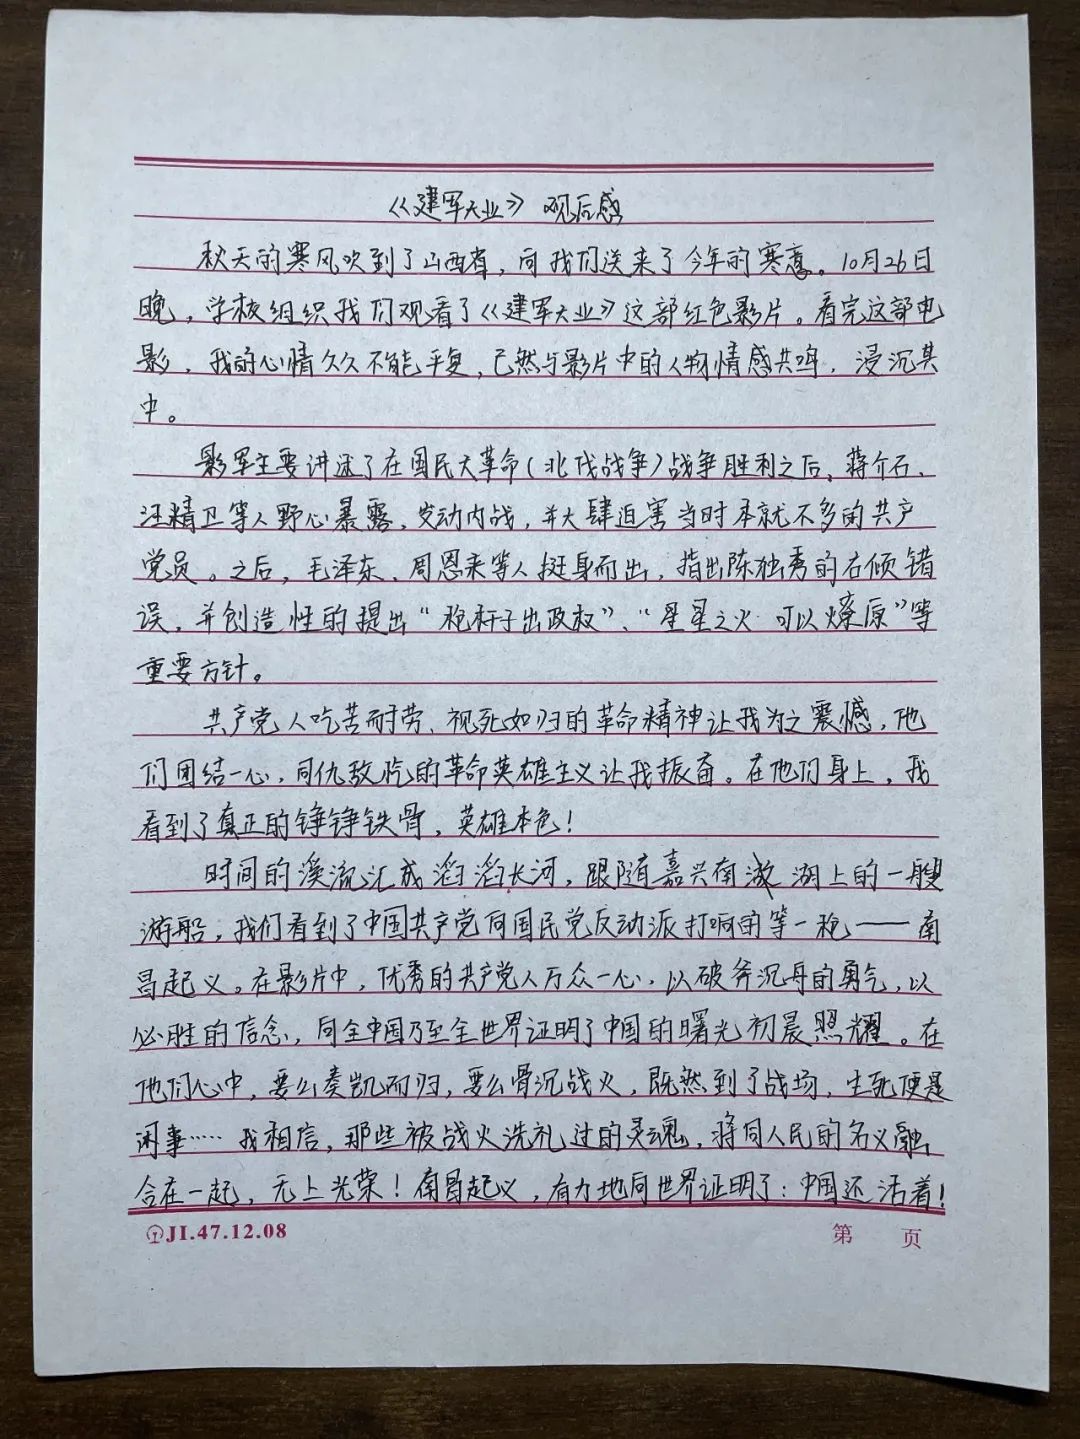 《建军大业》观后感
秋天的寒风吹到了山西省，向我们送来了今年的寒意。10月26日
晚，学校组织我们观看了《建军大业》这部红色影片。看完这部电
影，我的心情久久不能平复，已然与影片中的人物情感共鸣，浸沉其
中。
影军主要讲述了在国民大革命（北伐战争）战争胜利之后，蒋介石、
汪精卫等人野心暴露，发动内战，并大肆迫害当时本就不多的共产
党员。之后，毛泽东、周恩来等人挺身而出，指出陈独秀的右倾错
误，并创造性的提出“枪杆子出政权”、“星星之火 可以燎原”等
重要方针。
共产党人吃苦耐劳、视死如归的革命精神让我为之震憾，他
们团结一心，同仇敌忾的革命英雄主义让我振奋。在他们身上，我
看到了真正的铮铮铁骨，英雄本色！
时间的溪流汇成滔滔长河，跟随嘉兴南湖上的一艘
游船，我们看到了中国共产党向国民党反动派打响的第一枪——南
昌起义。在影片中，优秀的共产党人万众一心，以破斧沉舟的勇气，以
必胜的信念，向全中国乃至全世界证明了中国的曙光初晨照耀。在
他们心中，要么奏凯而归，要么骨沉战火，既然到了战场，生死便是
闲事……我相信，那些被战火洗礼过的灵魂，将同人民的名义融
合在一起，无上光荣！南昌起义，有力地向世界证明了：中国还活着！
JI.47.12.08
第 页